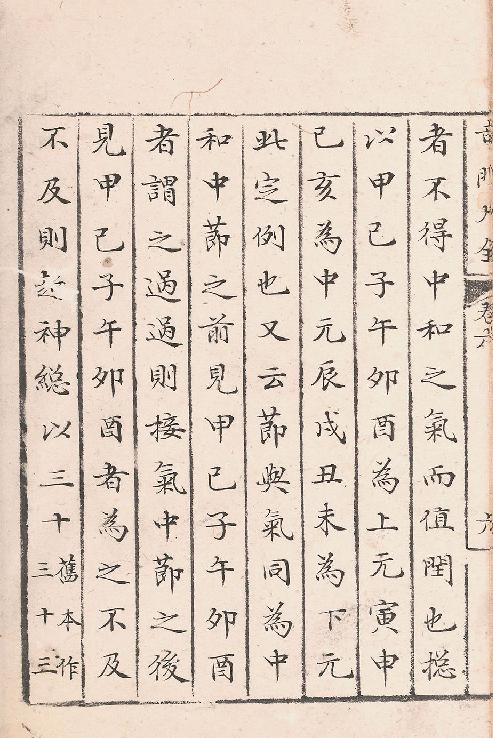 卷六
六
者不得中和之氣而值閏也揔
以甲己子午卯酉為上元寅申
巳亥為中元辰戌丑未為下元
此定例也又云莭與氣同為中
和中莭之前見甲己子午卯酉
者謂之過過則接氣中莭之後
見甲己子午卯酉者為之不及
不及則超神緫以三十舊本作三十三